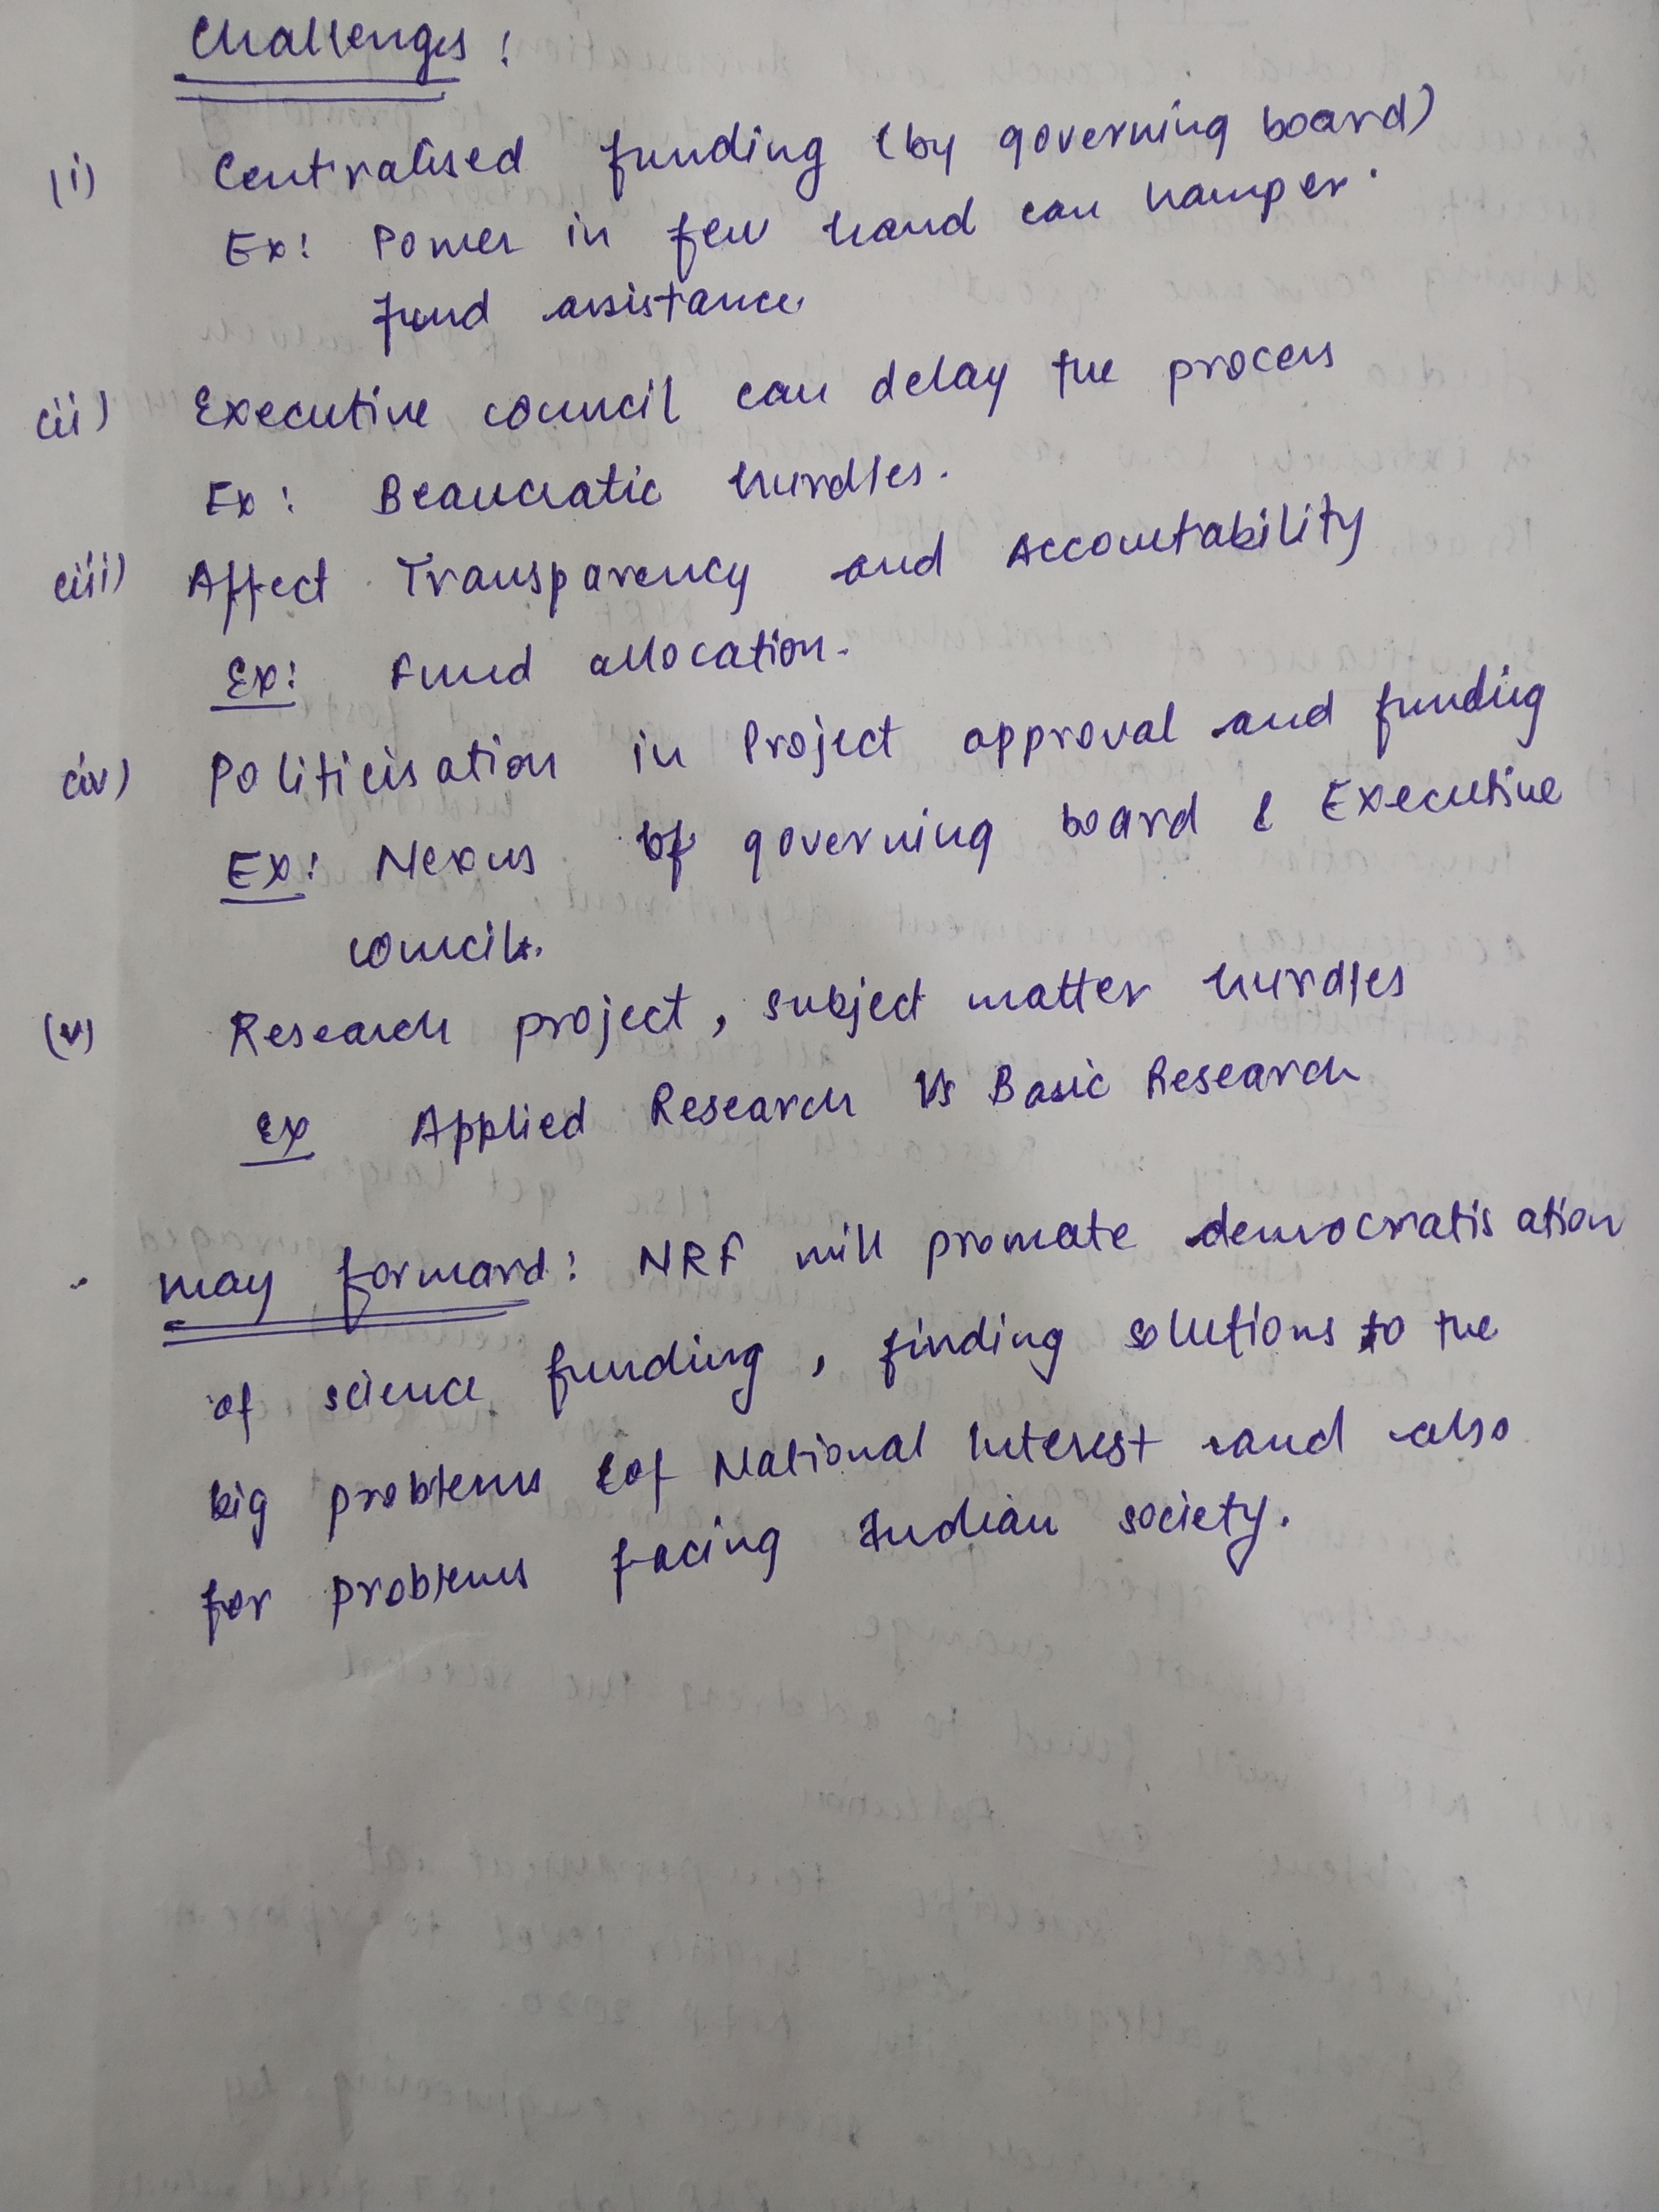 Challenges :
(i) Centralised funding (by governing board)
Ex: Power in few hand can hamper
fund assistance
(ii) Executive council can delay the process
Ex: Beaucratic hurdles.
(iii) Affect Transparency and Accountability
Ex: Fund allocation.
(iv) Politicisation in Project approval and funding
Ex: Nexus of governing board & Executive
council.
(v) Research project, subject matter hurdles
Ex Applied Research Vs Basic Research
Way forward: NRF will promote democratisation
of science funding, finding solutions to the
big problems of National Interest and also
for problems facing Indian society.